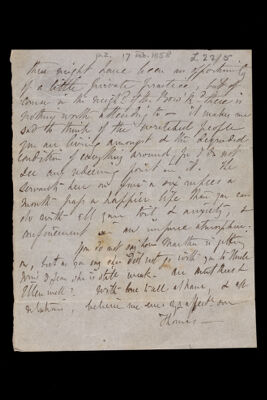 p.2. 17 Feb. 1858 L. 22/5
there might have been an opportunity
of a little private practice, but of
course in the midst of the there is
nothing worth attending to - it makes me
sad to think of the wretched people
you are living amongst & the degraded
condition of everything around you I do not
see any redeeming point in it. The
servants here on six rupees a
month pass a happier life than you can
do with all your toil & anxiety, &
confinement in an impure atmosphere.
You do not say how Martha is getting
on, but as you say she did not go with you to Uncle
she is still weak. are
Ellen well? With love to all at home, & all
relations, believe me ever yr affect: son
Thomas